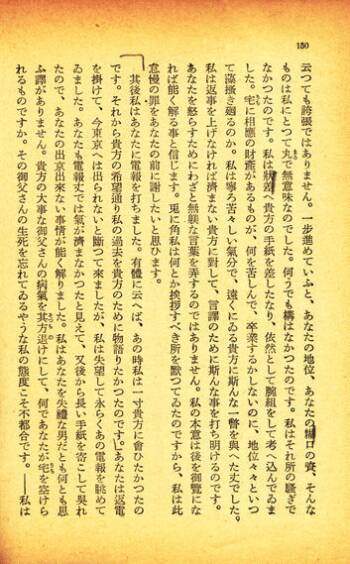 150
云つても誇張ではありません。一步進めていふと、あなたの地位、あなたの糊口の資、そんな
ものは私にとつて丸で無意味なのでした。何うでも構はなかつたのです。私はそれ所の騷ぎで
なかつたのです。私は狀差へ貴方の手紙を差したなり、依然として腕組をして考へ込んでゐま
した。宅に相應の財產があるものが、何を苦しんで、卒業するかしないのに、地位々々といつ
て藻搔き廻るのか。私は寧ろ苦々しい氣分で、遠くにゐる貴方に斯んな一瞥を與へた丈でした。
私は返事を上げなければ濟まない貴方に對して、言譯のために斯んな事を打ち明けるのです。
あなたを怒らすためにわざと無躾な言葉を弄するのではありません。私の本意は後を御覽にな
れば能く解る事と信じます。兎に角私は何とか挨拶すべき所を默つてゐたのですから、私は此
怠慢の罪をあなたの前に謝したいと思ひます。
其後私はあなたに電報を打ちました。有體に云へば、あの時私は一寸貴方に會ひたかつたの
です。それから貴方の希望通り私の過去を貴方のために物語りたかつたのです。あなたは返電
を掛けて、今東京へは出られないと斷つて來ましたが、私は失望して永らくあの電報を眺めて
ゐました。あなたも電報丈では氣が濟まなかつたと見えて、又後から長い手紙を寄こして吳れ
たので、あなたの出京出來ない事情が能く解りました。私はあなたを失禮な男だとも何とも思
ふ譯がありません。貴方の大事な御父さんの病氣を其方退けにして、何であなたが宅を空けら
れるものですか。その御父さんの生死を忘れてゐるやうな私の態度こそ不都合です。――私は